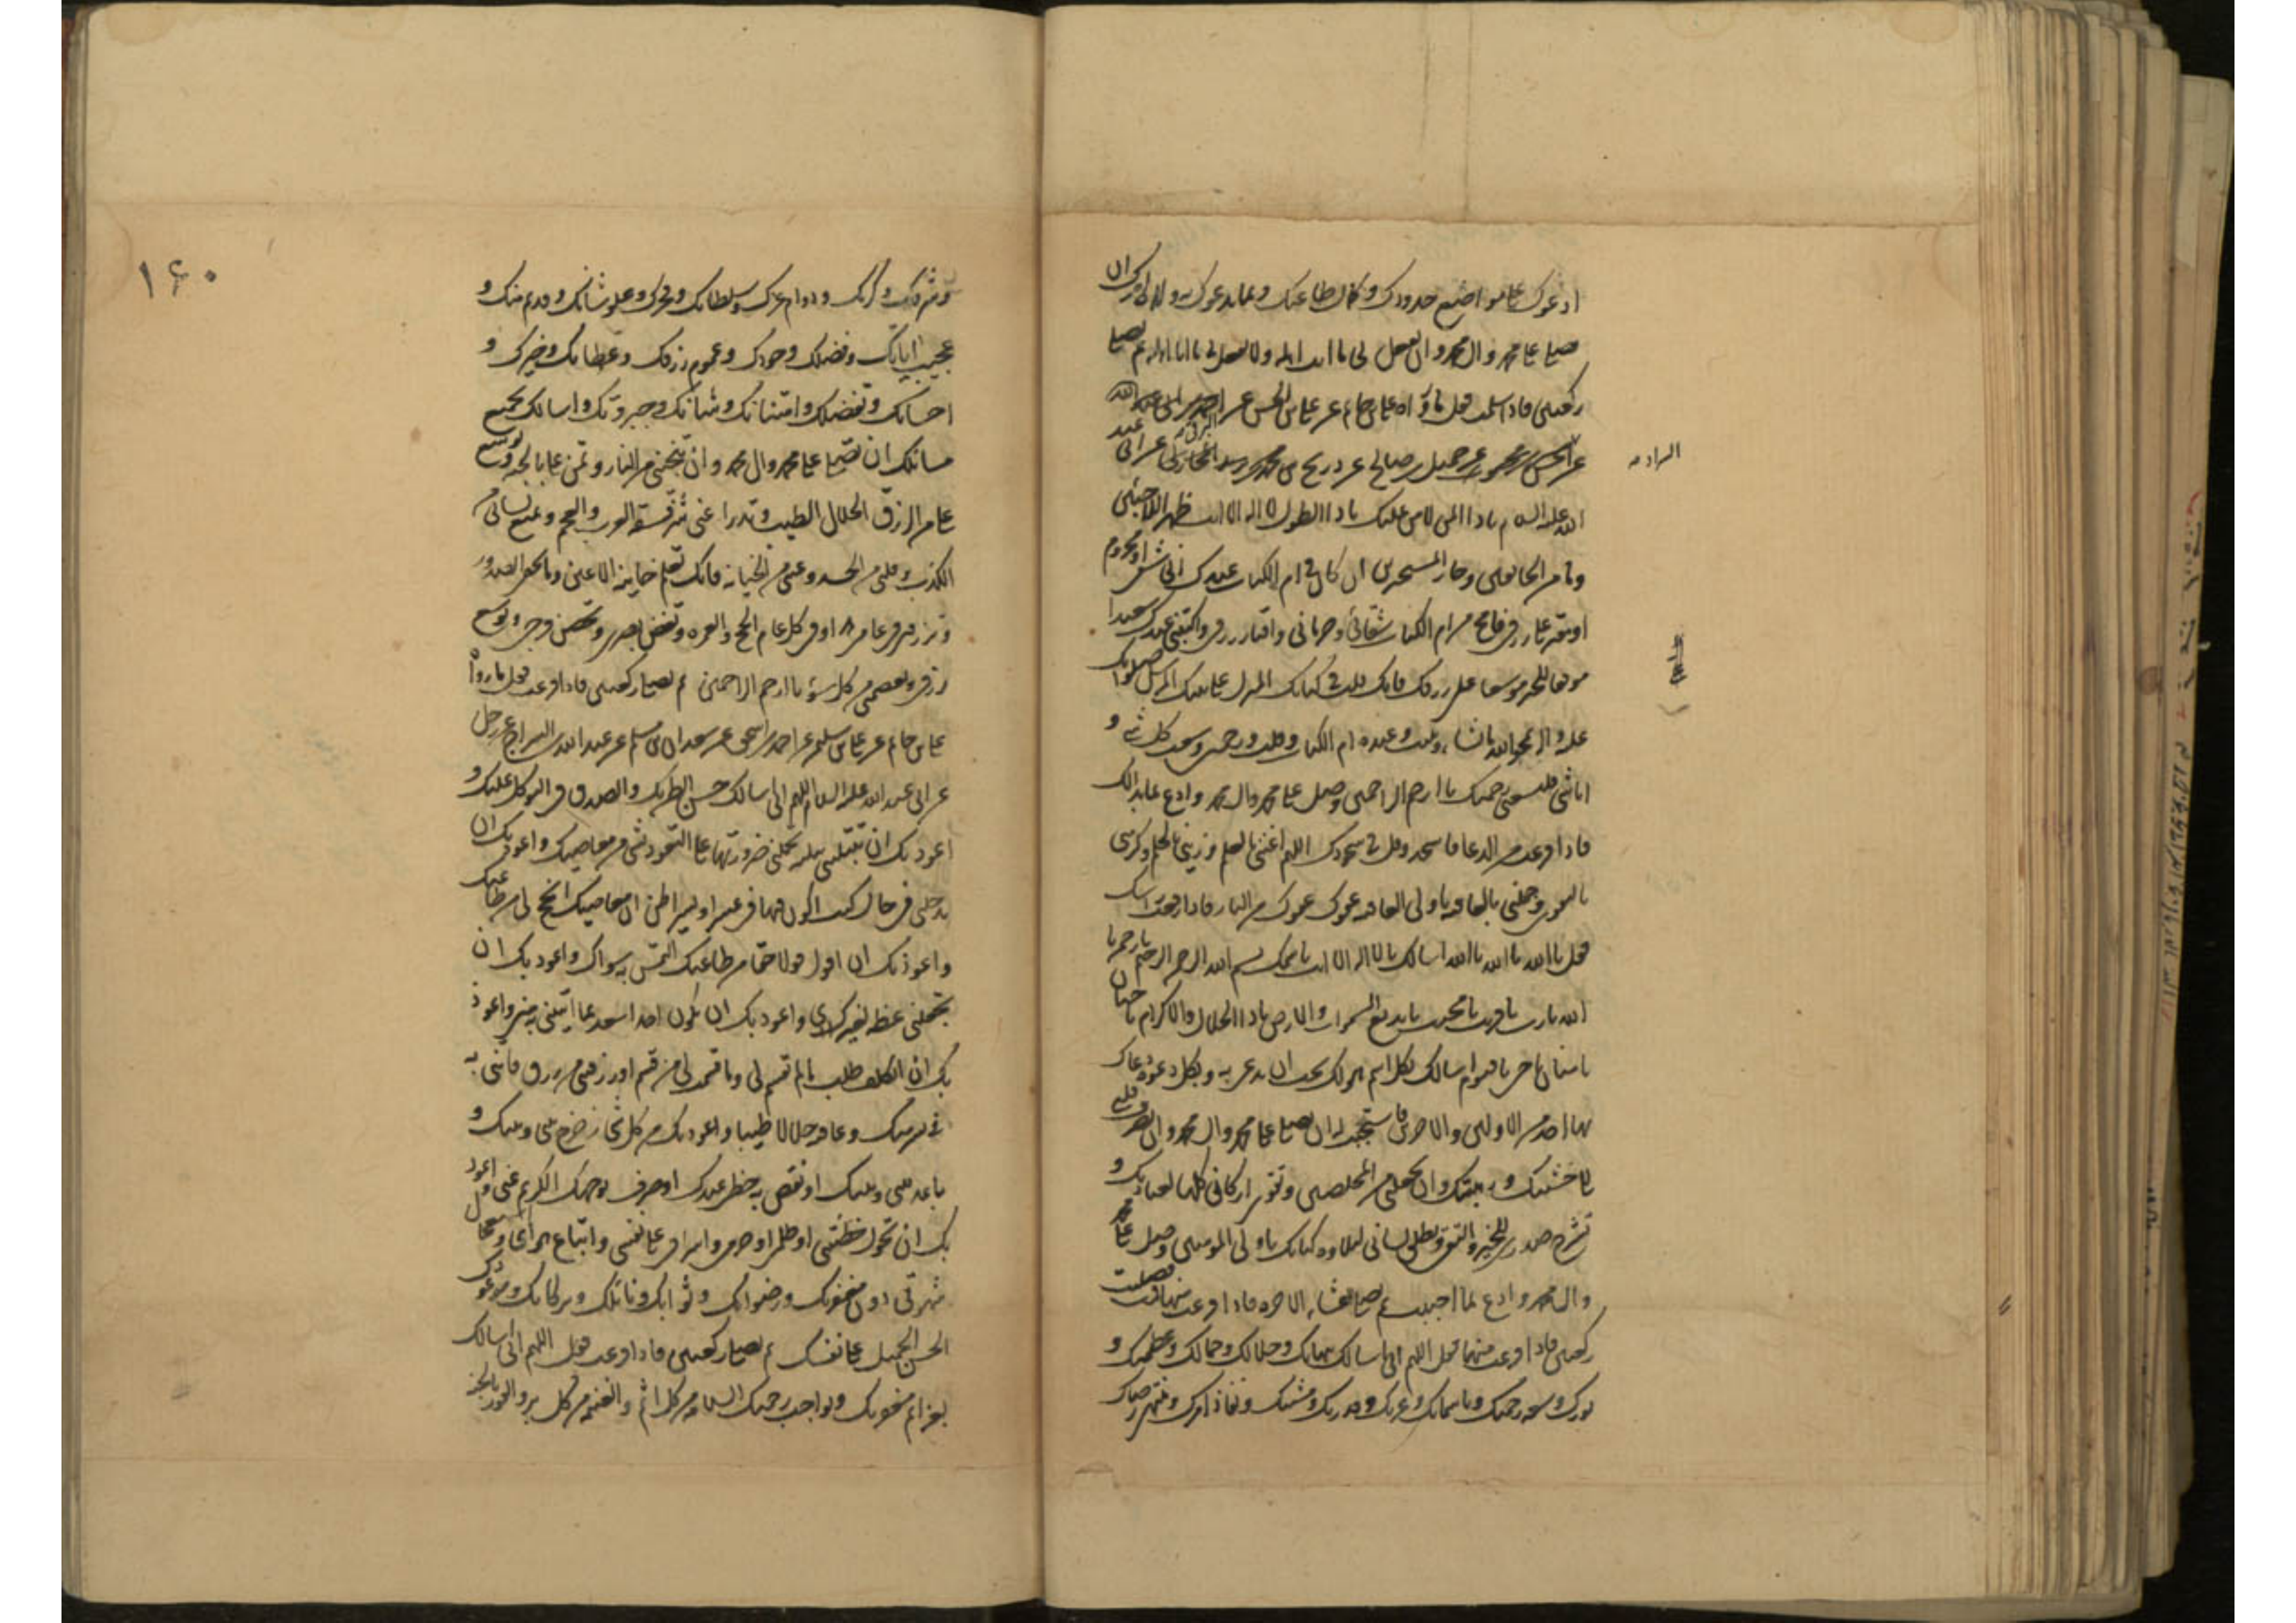 ادعوك على مواضع حدودك وكمال طاعتك وبما يدعوك به ولاة امرك ان
تصلي على محمد وال محمد وان تفعل بي ما انت اهله ولا تفعل بي ما انا اهله ثم تصلي
ركعتين فاذا سلمت فقل ما رواه علي بن حاتم عن علي بن الحسن عن احمد بن ابي عبد الله
عن الحسن بن محبوب عن جميل بن صالح عن ذريح بن محمد بن يزيد المحاربي عن ابي عبد
الله عليه السلام يا ذا المن لا من عليك يا ذا الطول لا اله الا انت ظهر اللاجئين
ومأمن الخائفين وجار المستجيرين ان كان في ام الكتاب عندك اني شقي او محروم
او مقتر علي رزقي فامح من ام الكتاب شقائي وحرماني واقتار رزقي واكتبني عندك سعيدا
موفقا للخير موسعا علي رزقك فانك قلت في كتابك المنزل على نبيك المرسل صلواتك
عليه واله يمحو الله ما يشاء ويثبت وعنده ام الكتاب وقلت ورحمتي وسعت كل شيء و
انا شيء فلتسعني رحمتك يا ارحم الراحمين وصل على محمد وال محمد وادع بما بدا لك
فاذا فرغت من الدعا فاسجد وقل في سجودك اللهم اغنني بالعلم وزيني بالحلم وكرمني
بالتقوى وجملني بالعافية يا ولي العافية عفوك عفوك من النار فاذا رفعت راسك
فقل يا الله يا الله يا الله اسالك بلا اله الا انت باسمك بسم الله الرحمن الرحيم يا رحمن يا
الله يا رب يا قريب يا مجيب يا بديع السموات والارض يا ذا الجلال والاكرام يا حنان
يا منان يا حي يا قيوم اسالك بكل اسم هو لك تحب ان تدعى به وبكل دعوة دعاك
بها احد من الاولين والاخرين فاستجبت له ان تصلي على محمد وال محمد وان تصرف قلبي
الى خشيتك ورهبتك وان تجعلني من المخلصين وتقوي اركاني كلها لعبادتك و
تشرح صدري للخير والتقى وتطلق لساني لتلاوة كتابك يا ولي المؤمنين وصل على محمد
وال محمد وادع بما احببت ثم صل العشاء الاخرة فاذا فرغت منها قمت فصليت
ركعتين فاذا فرغت منهما فقل اللهم اني اسالك ببهائك وجلالك وجمالك وعظمتك و
نورك وسعة رحمتك وباسمائك وعزتك وقدرتك ومشيتك ونفاذ امرك ومنتهى رضاك
الراد
١٤٠
وشرفك وكرمك ودوام عزك وسلطانك وفخرك وعلو شانك وقدم منك و
عجيب اياتك وفضلك وجودك وعموم رزقك وعطائك وخيرك و
احسانك وتفضلك وامتنانك وشانك وجبروتك واسالك بجميع
مسائلك ان تصلي على محمد وال محمد وان تنجيني من النار وتمن علي بالجنة وتوسع
علي من الرزق الحلال الطيب وتدرا عني شر فسقة العرب والعجم وتمنع لساني من
الكذب وقلبي من الحسد وعيني من الخيانة فانك تعلم خاينة الاعين وما تخفي الصدور
وترزقني في عامي هذا وفي كل عام الحج والعمرة وتغض بصري وتحصن فرجي وتوسع
رزقي وتعصمني من كل سوء يا ارحم الراحمين ثم تصلي ركعتين فاذا فرغت فقل ما رواه
علي بن حاتم عن علي بن سليمن عن احمد بن اسحق عن سعدان بن مسلم عن عبد الله السراج عن رجل
عن ابي عبد الله عليه السلام اللهم اني اسالك حسن الظن بك والصدق في التوكل عليك و
اعوذ بك ان تبتليني ببلية تحملني ضرورتها على التغوث بشيء من معاصيك واعوذ بك ان
تدخلني في حال كنت اكون فيها في عسر او يسر اظن ان معاصيك انجح لي من طاعتك
واعوذ بك ان اقول قولا حقا من طاعتك التمس به سواك واعوذ بك ان
تجعلني عظة لغيري واعوذ بك ان يكون احد اسعد بما اتيتني به مني واعوذ
بك ان اتكلف طلب ما لم تقسم لي وما قسمت لي من قسم او رزقتني من رزق فاتني به
في يسر منك وعافية حلالا طيبا واعوذ بك من كل شيء زحزح بيني وبينك و
باعد بيني وبينك او نقص به حظي عندك او صرف بوجهك الكريم عني واعوذ
بك ان تحول خطيئتي او ظلمي او جرمي واسرافي على نفسي واتباع هواي واستعجال
شهوتي دون مغفرتك ورضوانك وثوابك ونائلك وبركاتك وموعودك
الحسن الجميل على نفسك ثم تصلي ركعتين فاذا فرغت فقل اللهم اني اسالك
بعزائم مغفرتك وبواجب رحمتك السلامة من كل اثم والغنيمة من كل بر والفوز بالجنة